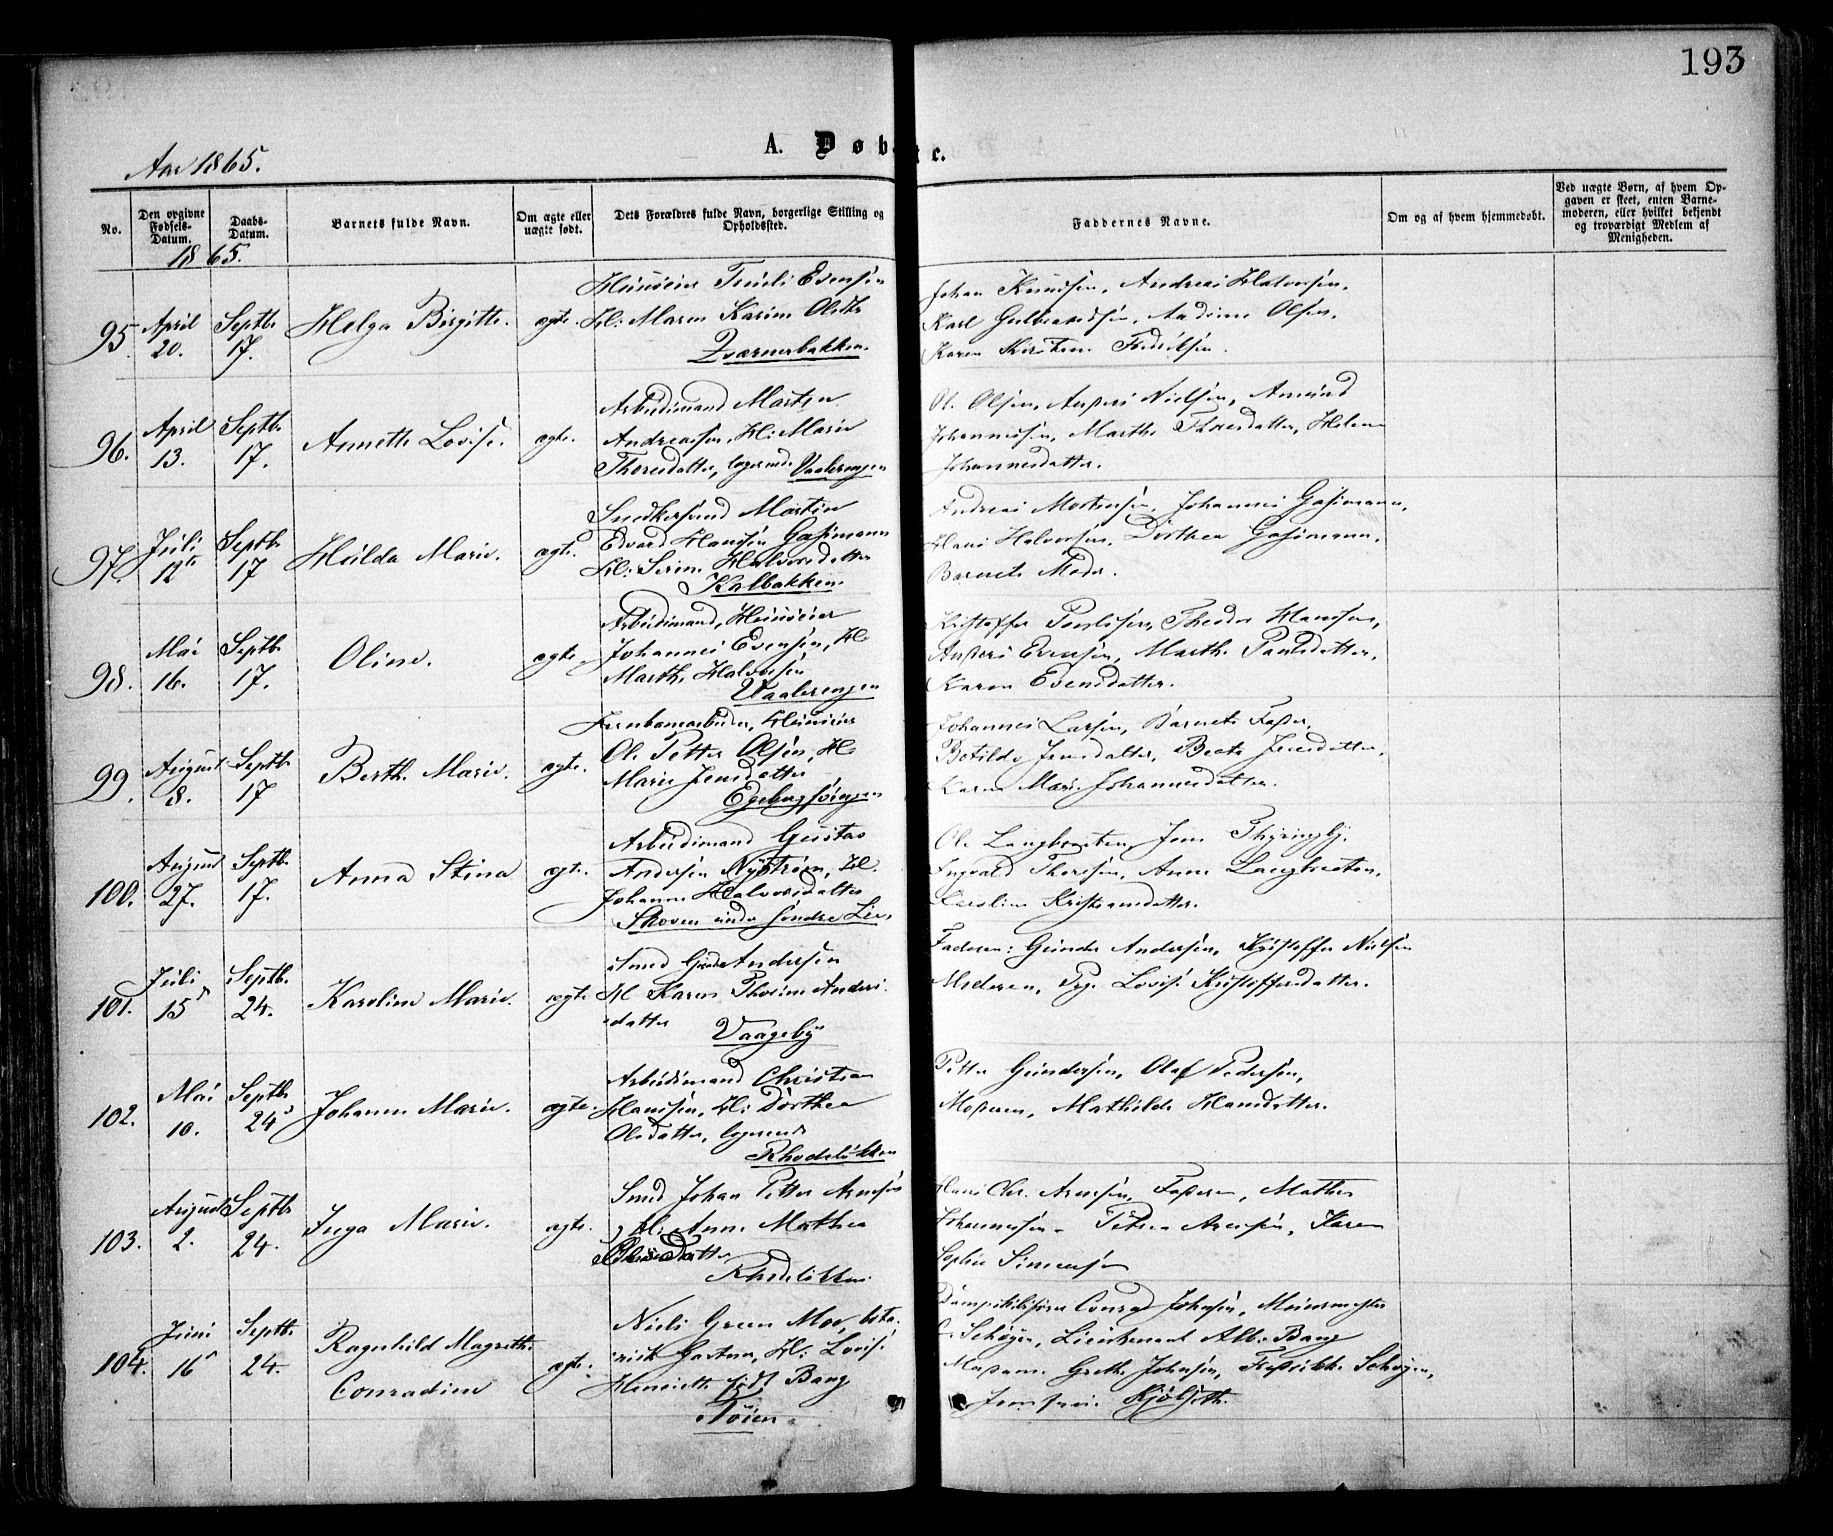 193
Aar 1865.
A. Døbte.
No.
Den opgivne Fødsels-Datum.
Daabs-Datum.
Barnets fulde Navn.
Om ægte eller uægte født.
Dets Forældres fulde Navn, borgerlige Stilling og Opholdssted.
Faddernes Navne.
Om og af hvem hjemmedøbt.
Ved uægte Børn, af hvem Opgaven er skeet, enten Barnemoderen, eller hvilket bekjendt og troværdigt Medlem af Menigheden.
1865.
95. April 20. Septbr 17. Helga Birgitte. ægte.
Huuseier Truls Evensen
H: Maren Karine Olsdtr
Kværnerbakken.
Johan Knudsen, Andreas Halvorsen,
Karl Gulbrandsen, Andine Olsen,
Karen Kirstine Fredriksen.
96. April 13. Septbr 17. Annette Lovise. ægte.
Arbeidsmand Morten
Andreassen, H: Marie
Thoresdatter, logerende Vaalerengen
Ol. Olsen, Anders Nielsen, Amund
Johannessen, Marthe Thoresdatter, Helene
Johannesdatter.
97. Juli 12te Septbr 17 Hulda Marie. ægte.
Snedkersvend Martin
Edvard Hansen Gasmann
H: Serine Halvorsdatter
Kalbakken
Andreas Mortensen, Johannes Gasmann,
Hans Halvorsen, Dorthea Gasmann,
Barnets Moder.
98. Mai 16. Septbr 17. Oline. ægte.
Arbeidsmand, Huuseier
Johannes Evensen, H:
Marthe Halvorsen
Vaalerengen
Kristoffer Poulsen, Theodor Hansen,
Anders Evensen, Marthe Paulsdatter,
Karen Evensdatter.
99. August 8. Septbr 17 Berthe Marie. ægte.
Jernbanearbeider, Huuseier
Ole Petter Olsen, H:
Marie Jensdatter
Egebergsvingen
Johannes Larsen, Barnets Fader,
Botilde Jensdatter, Beate Jensdatter,
Karen Marie Johannesdatter.
100. August 27. Septbr 17. Anna Stina ægte.
Arbeidsmand Gustav
Andersen Nystrøm, H:
Johanne Halvorsdatter
Skoven under søndre Lie.
Ole Langbraaten, Jens
Ingvald Thoresen, Anne Langbraaten,
Karoline Kristiansdatter.
101. Juli 15de Septbr. 24. Karoline Marie. ægte
Smed Gunder Andersen
H: Karen Thorine Anders-
datter
Vaageby
Faderen: Gunder Andersen, Kristoffer Nielsen
Moderen, Pige Lovise Kristoffersdatter.
102. Mai 10. Septbr 24s Johanne Marie. ægte
Arbeidsmand Christian
Hansen, H: Dorthea
Olsdatter, logerende
Rhodeløkken
Petter Gundersen, Olaf Pedersen,
Moderen, Mathilde Hansdatter.
103. August 2. Septbr 24. Inga Marie. ægte.
Smed Johan Petter Arnesen
H: Anne Mathea
Rhodeløkken
Hans Chr. Arnesen, Faderen, Mathea
Johannesen, Petrea Arnesen, Karen
Sophie Simensen
104. Juni 16de Septbr. 24. Ragnhild Magrethe Conradine ægte.
Niels Green Moe, bota-
nisk Gartner, H: Lovise
Henriette født Bang
Tøien.
Conrad Johnsen, Muurmester
Schøyen, Lieutenant Alb. Bang
Madame Grethe Johnsen, Fredrikke Schøyen,
Jomfru Kjølseth.